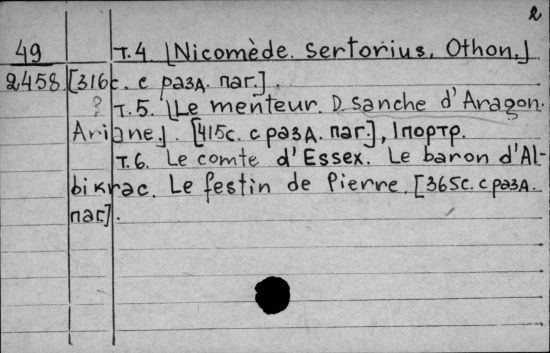 2
49 т.4. [Nicomède. Sertorius, Othon.]
2458 [316с. с разд. паг.].
? т.5. [Le menteur. D sanche d'Aragon.
Ariane]. [415с. с разд. паг.], 1портр.
т.6. Le comte d'Essex. Le baron d'Al-
bikrac. Le festin de Pierre. [365с. с разд.
паг].